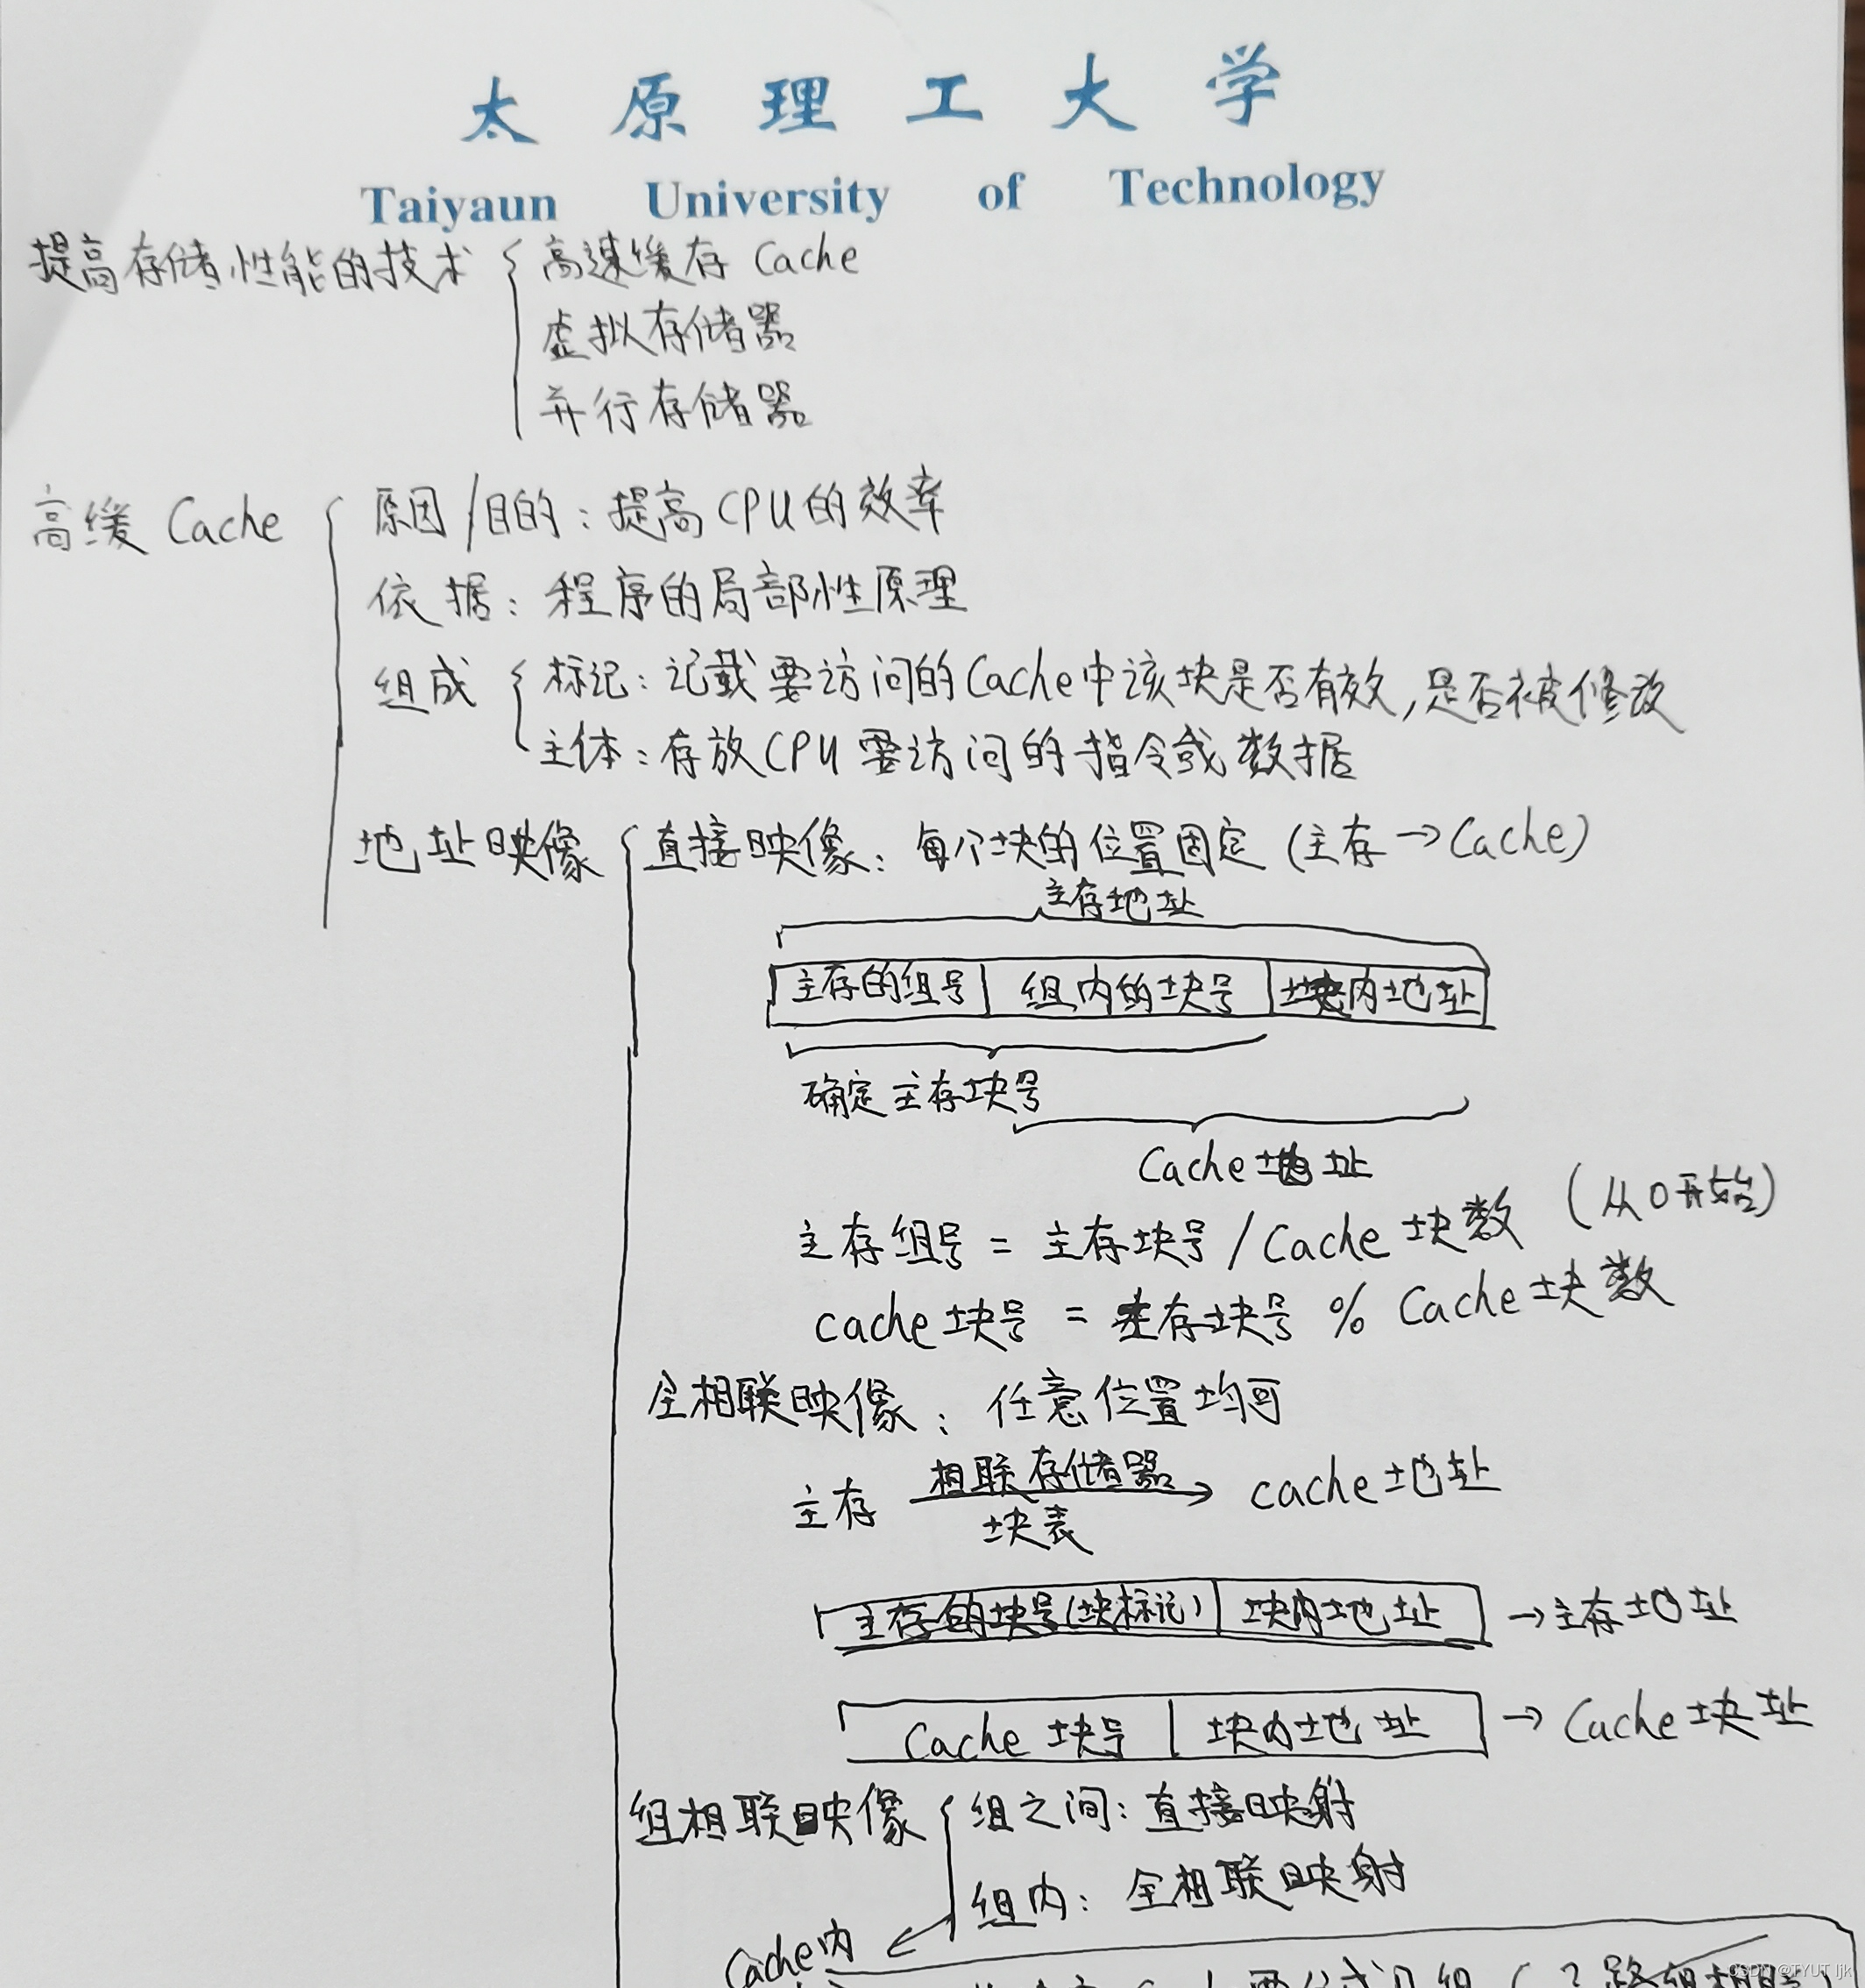 太原理工大学
Taiyaun University of Technology
提高存储性能的技术 高速缓存 Cache
虚拟存储器
并行存储器
高缓 Cache 原因/目的：提高CPU的效率
依据：程序的局部性原理
组成 标记：记载要访问的Cache中该块是否有效，是否被修改
主体：存放CPU要访问的指令或数据
地址映像 直接映像：每个块的位置固定（主存→Cache）
主存地址
主存的组号 组内的块号 块内地址
确定主存块号
Cache地址
主存组号 = 主存块号 / Cache块数（从0开始）
cache块号 = 主存块号 % Cache块数
全相联映像：任意位置均可
主存 相联存储器 → cache地址
块表
主存的块号(块标记) 块内地址 →主存地址
Cache 块号 块内地址 → Cache块址
组相联映像 组之间：直接映射
组内：全相联映射
Cache内
CSDN @TYUT ljk